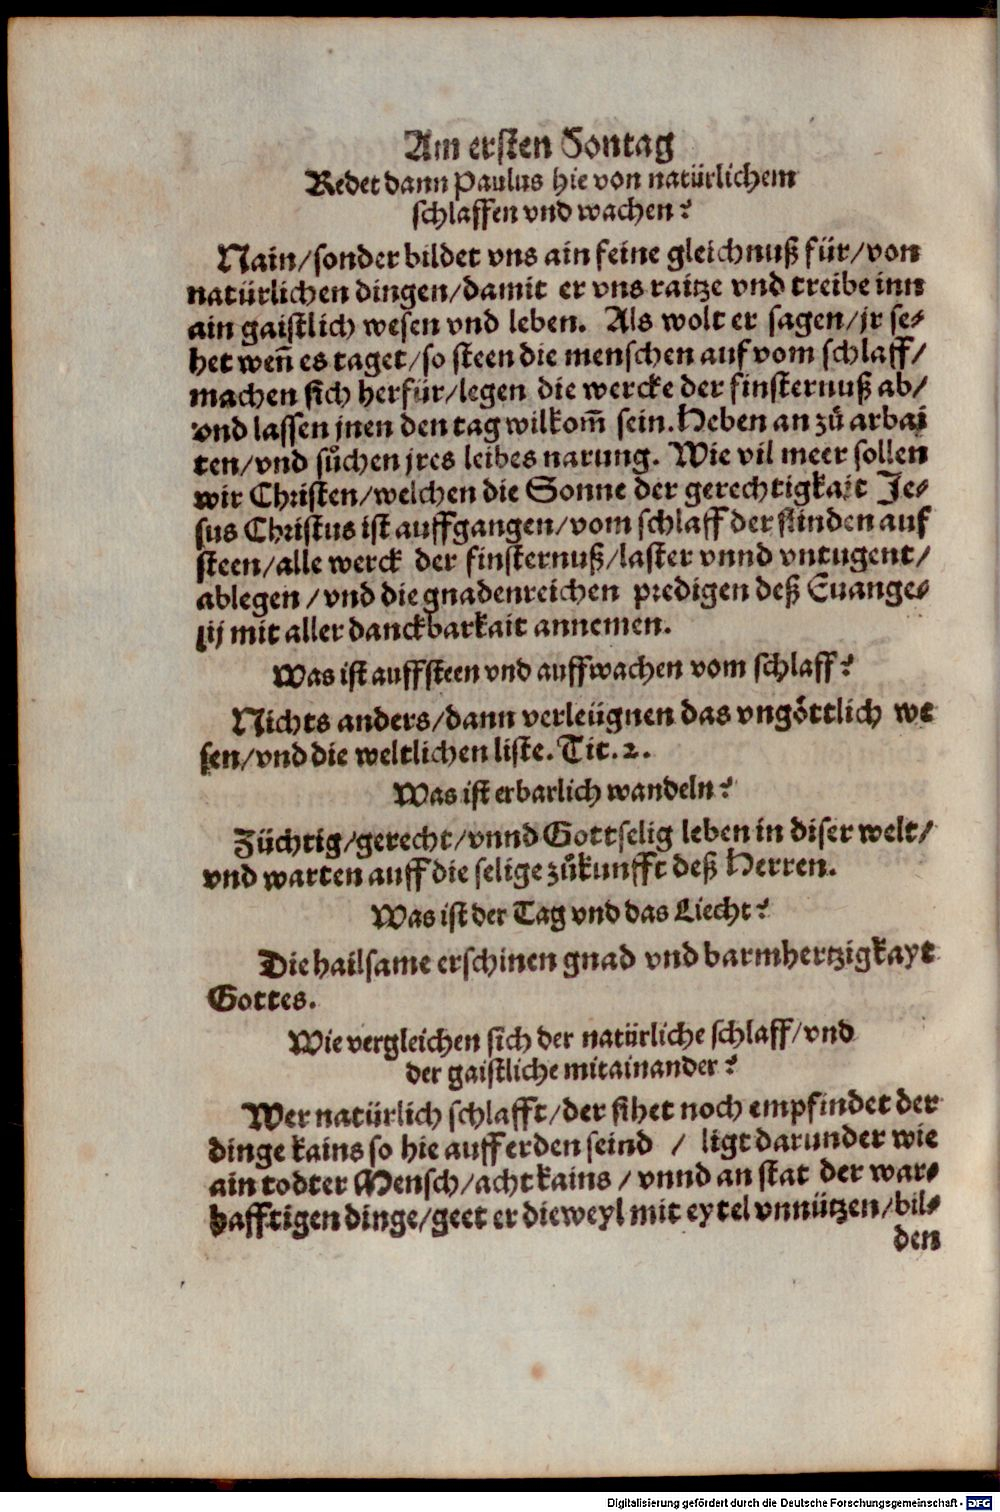 Am ersten Sontag
Redet dann Paulus hie von natürlichem
schlaffen vnd wachen?
Nain/sonder bildet vns ain feine gleichnuß für/von
natürlichen dingen/damit er vns raitze vnd treibe inn
ain gaistlich wesen vnd leben. Als wolt er sagen/jr se-
het weñ es taget/so steen die menschen auf vom schlaff/
machen sich herfür/legen die wercke der finsternuß ab/
vnd lassen jnen den tag wilkom̃ sein. Heben an zů arbai
ten/vnd sůchen jres leibes narung. Wie vil meer sollen
wir Christen/welchen die Sonne der gerechtigkait Je-
sus Christus ist auffgangen/vom schlaff der sünden auf
steen/alle werck der finsternuß/laster vnnd vntugent/
ablegen/vnd die gnadenreichen predigen deß Euange-
lij mit aller danckbarkait annemen.
Was ist auffsteen vnd auffwachen vom schlaff?
Nichts anders/dann verleügnen das vngöttlich we
sen/vnd die weltlichen liste. Tit. 2.
Was ist erbarlich wandeln?
Züchtig/gerecht/vnnd Gottselig leben in diser welt/
vnd warten auff die selige zůkunfft deß Herren.
Was ist der Tag vnd das Liecht?
Die hailsame erschinen gnad vnd barmhertzigkayt
Gottes.
Wie vergleichen sich der natürliche schlaff/vnd
der gaistliche mitainander?
Wer natürlich schlafft/der sihet noch empfindet der
dinge kains so hie auff erden seind / ligt darunder wie
ain todter Mensch/acht kains/vnnd an stat der war-
hafftigen dinge/geet er dieweyl mit eytel vnnützen/bil-
den
Digitalisierung gefördert durch die Deutsche Forschungsgemeinschaft - DFG